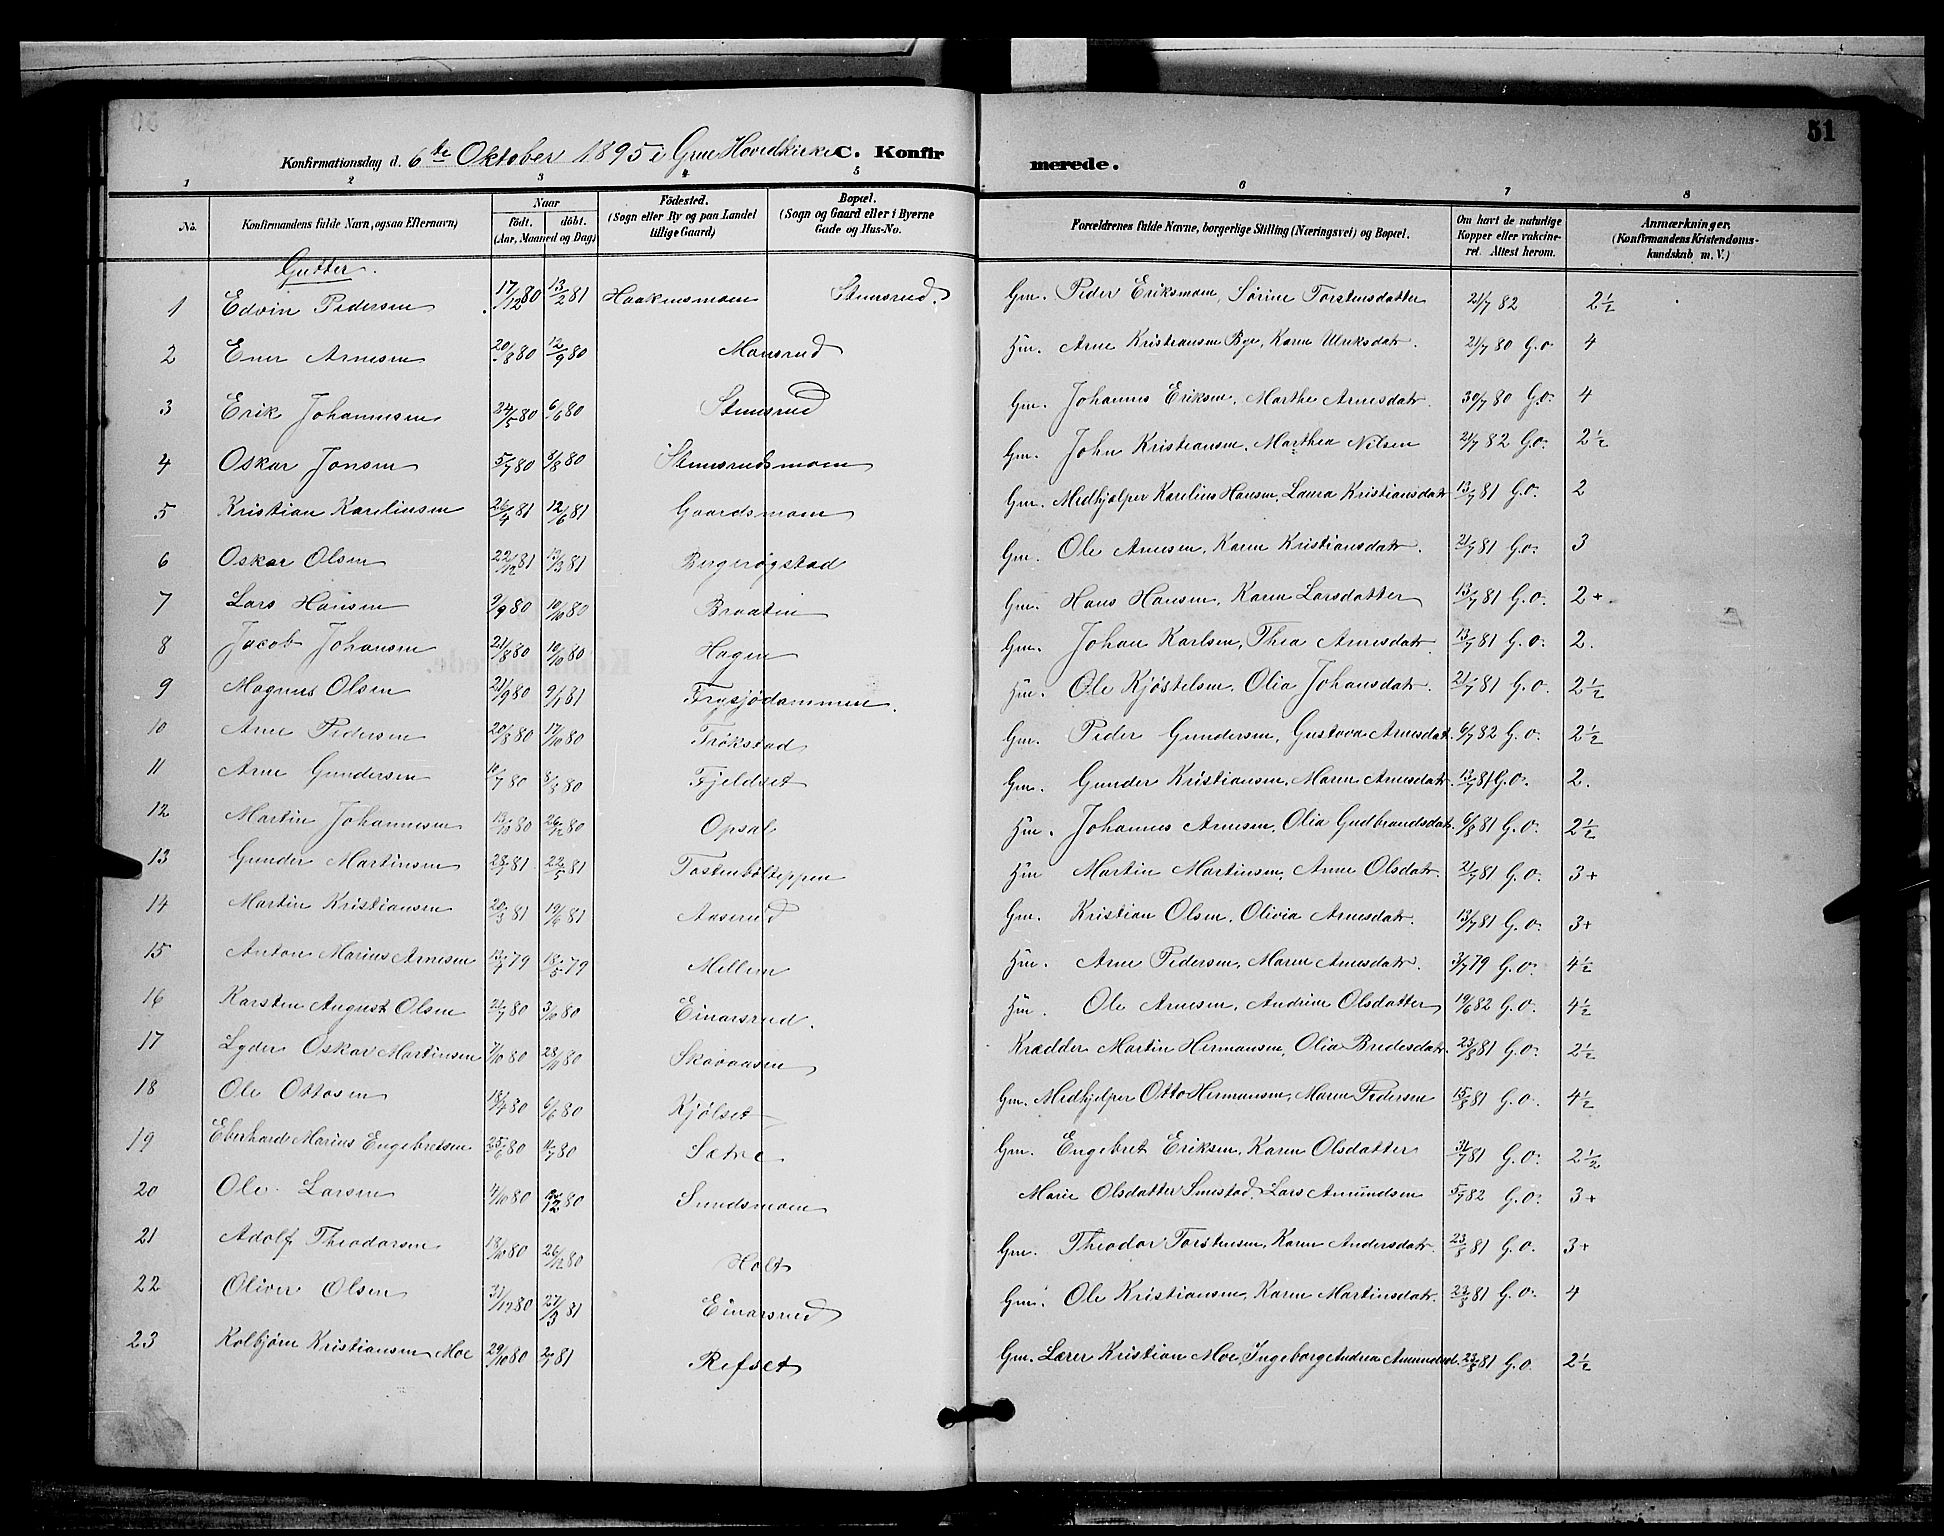 51
Konfirmationsdag d. 6te Oktober 1895 i Grue Hovedkirke C. Konfir merede.
1 2 3 4 5 6 7 8
No. Konfirmandens fulde Navn, ogsaa Efternavn) Naar födt. döbt. (Aar, Maaned og Dag) Födested. (Sogn eller By og paa Landet tillige Gaard) Bopæl. (Sogn og Gaard eller i Byerne Gade og Hus-No. Forældrenes fulde Navne, borgerlige Stilling (Næringsvei) og Bopæl. Om havt de naturlige Kopper eller vakcineret. Attest herom. Anmærkninger. (Konfirmandens Kristendomskundskab m. V.)
Gutter.
1 Edvin Pedersen 17/12 80 13/2 81 Haakensmoen Stemsrud. Gm. Peder Eriksmoen, Sørine Torstensdatter 21/7 82 2½
2 Ener Arnesen 20/8 80 12/9 80 Monsrud Hm. Arne Kristiansen Bye, Karen Ulriksdatr. 21/7 80 G.o. 4
3 Erik Johannesen 24/5 80 6/6 80 Stemsrud Gm. Johannes Eriksen, Marthe Arnesdatr. 30/7 80 G.o. 4
4 Oskar Jonsen 5/7 80 8/8 80 Stemsrudsmoen Gm. John Kristiansen, Marthea Nilsen 21/7 82 G.o. 2½
5 Kristian Kareliusen 26/4 81 12/6 81 Gaardsmoen Gm. Medhjælper Karelius Hansen, Laura Kristiansdatr 13/7 81 G.o. 2
6 Oskar Olsen 22/12 81 13/3 81 Bergerøgstad Gm. Ole Arnesen, Karen Kristiansdatr. 21/7 81 G.o. 3
7 Lars Hansen 9/9 80 10/10 80 Braaten Gm. Hans Hansen, Karen Larsdatter 13/7 81 G.o. 2+
8 Jacob Johansen 21/8 80 10/10 80 Hagen Gm. Johan Karlsen, Thea Arnesdatr. 13/7 81 G.o. 2.
9 Magnus Olsen 21/9 80 9/1 81 Frysjødammen. Hm. Ole Kjøstelsen, Olia Johansdatr. 21/7 81 G.o. 2½
10 Arne Pedersen 20/8 80 17/10 80 Frøkstad Gm. Peder Gundersen, Gustava Arnesdat. 6/7 82 G.o. 2½
11 Arne Gundersen 10/7 80 8/8 80 Fjeldset Gm. Gunder Kristiansen, Maren Arnesdatr. 13/7 81 G.o. 2.
12 Martin Johannesen 13/10 80 26/12 80 Opsal Hm. Johannes Arnesen, Olia Gudbrandsdatr. 6/8 81 G.o. 2½
13 Gunder Martinsen 81. 22/5 81 Hm Martin Martinsen, Anne Olsdatr. 21/7 81 G.o. 3+
14 Martin Kristiansen 20/3 81 19/6 81 Aaserud Gm. Kristian Olsen, Olivia Arnesdatr. 13/7 81 G.o. 3+
15 Anton Marius Arnesen 13/4 79 18/5 79 Mellem Hm. Arne Pedersen, Maren Arnesdatr. 3/7 79 G.o. 4½
16 Karsten August Olsen 21/7 80 3/10 80 Einarsrud. Hm. Ole Arnesen, Andrine Olsdatter 19/6 82 G.o. 4½
17 Lyder Oskar Martinsen 7/10 80 28/11 80 Skavaasen Krædder Martin Hermansen, Olia Bredesdatr. 23/8 81 G.o. 2½
18 Ole Ottosen 18/4 80 6/6 80 Kjølset Gm. Medhjelper Otto Hermansen, Maren Pedersen 15/8 81 G.o. 4½
19 Eberhard Marius Engebretsen 25/6 80 11/7 80 Sætre Gm. Engebret Eriksen, Karen Olsdatter 31/7 81 G.o. 2½
20 Ole Larsen 4/10 80 80 Sundsmoen Marie Olsdatter Smestad, Lars Amundsen 5/7 82 G.o. 3+
21 Adolf Theodorsen 18/10 80 26/12 80 Holt Gm. Theodor Torstensen, Karen Andersdatr. 23/8 81 G.o. 3+
22 Oliver Olsen 31/12 80 27/3 81 Einarsrud Gm. Ole Kristiansen, Karen Martinsdatr. 23/8 81 G.o. 4
23 Kolbjørn Kristiansen Moe 29/10 80 2/1 81 Refset Gm. Lærer Kristian Moe, Ingeborg Andrea 23/8 81 G.o. 2½